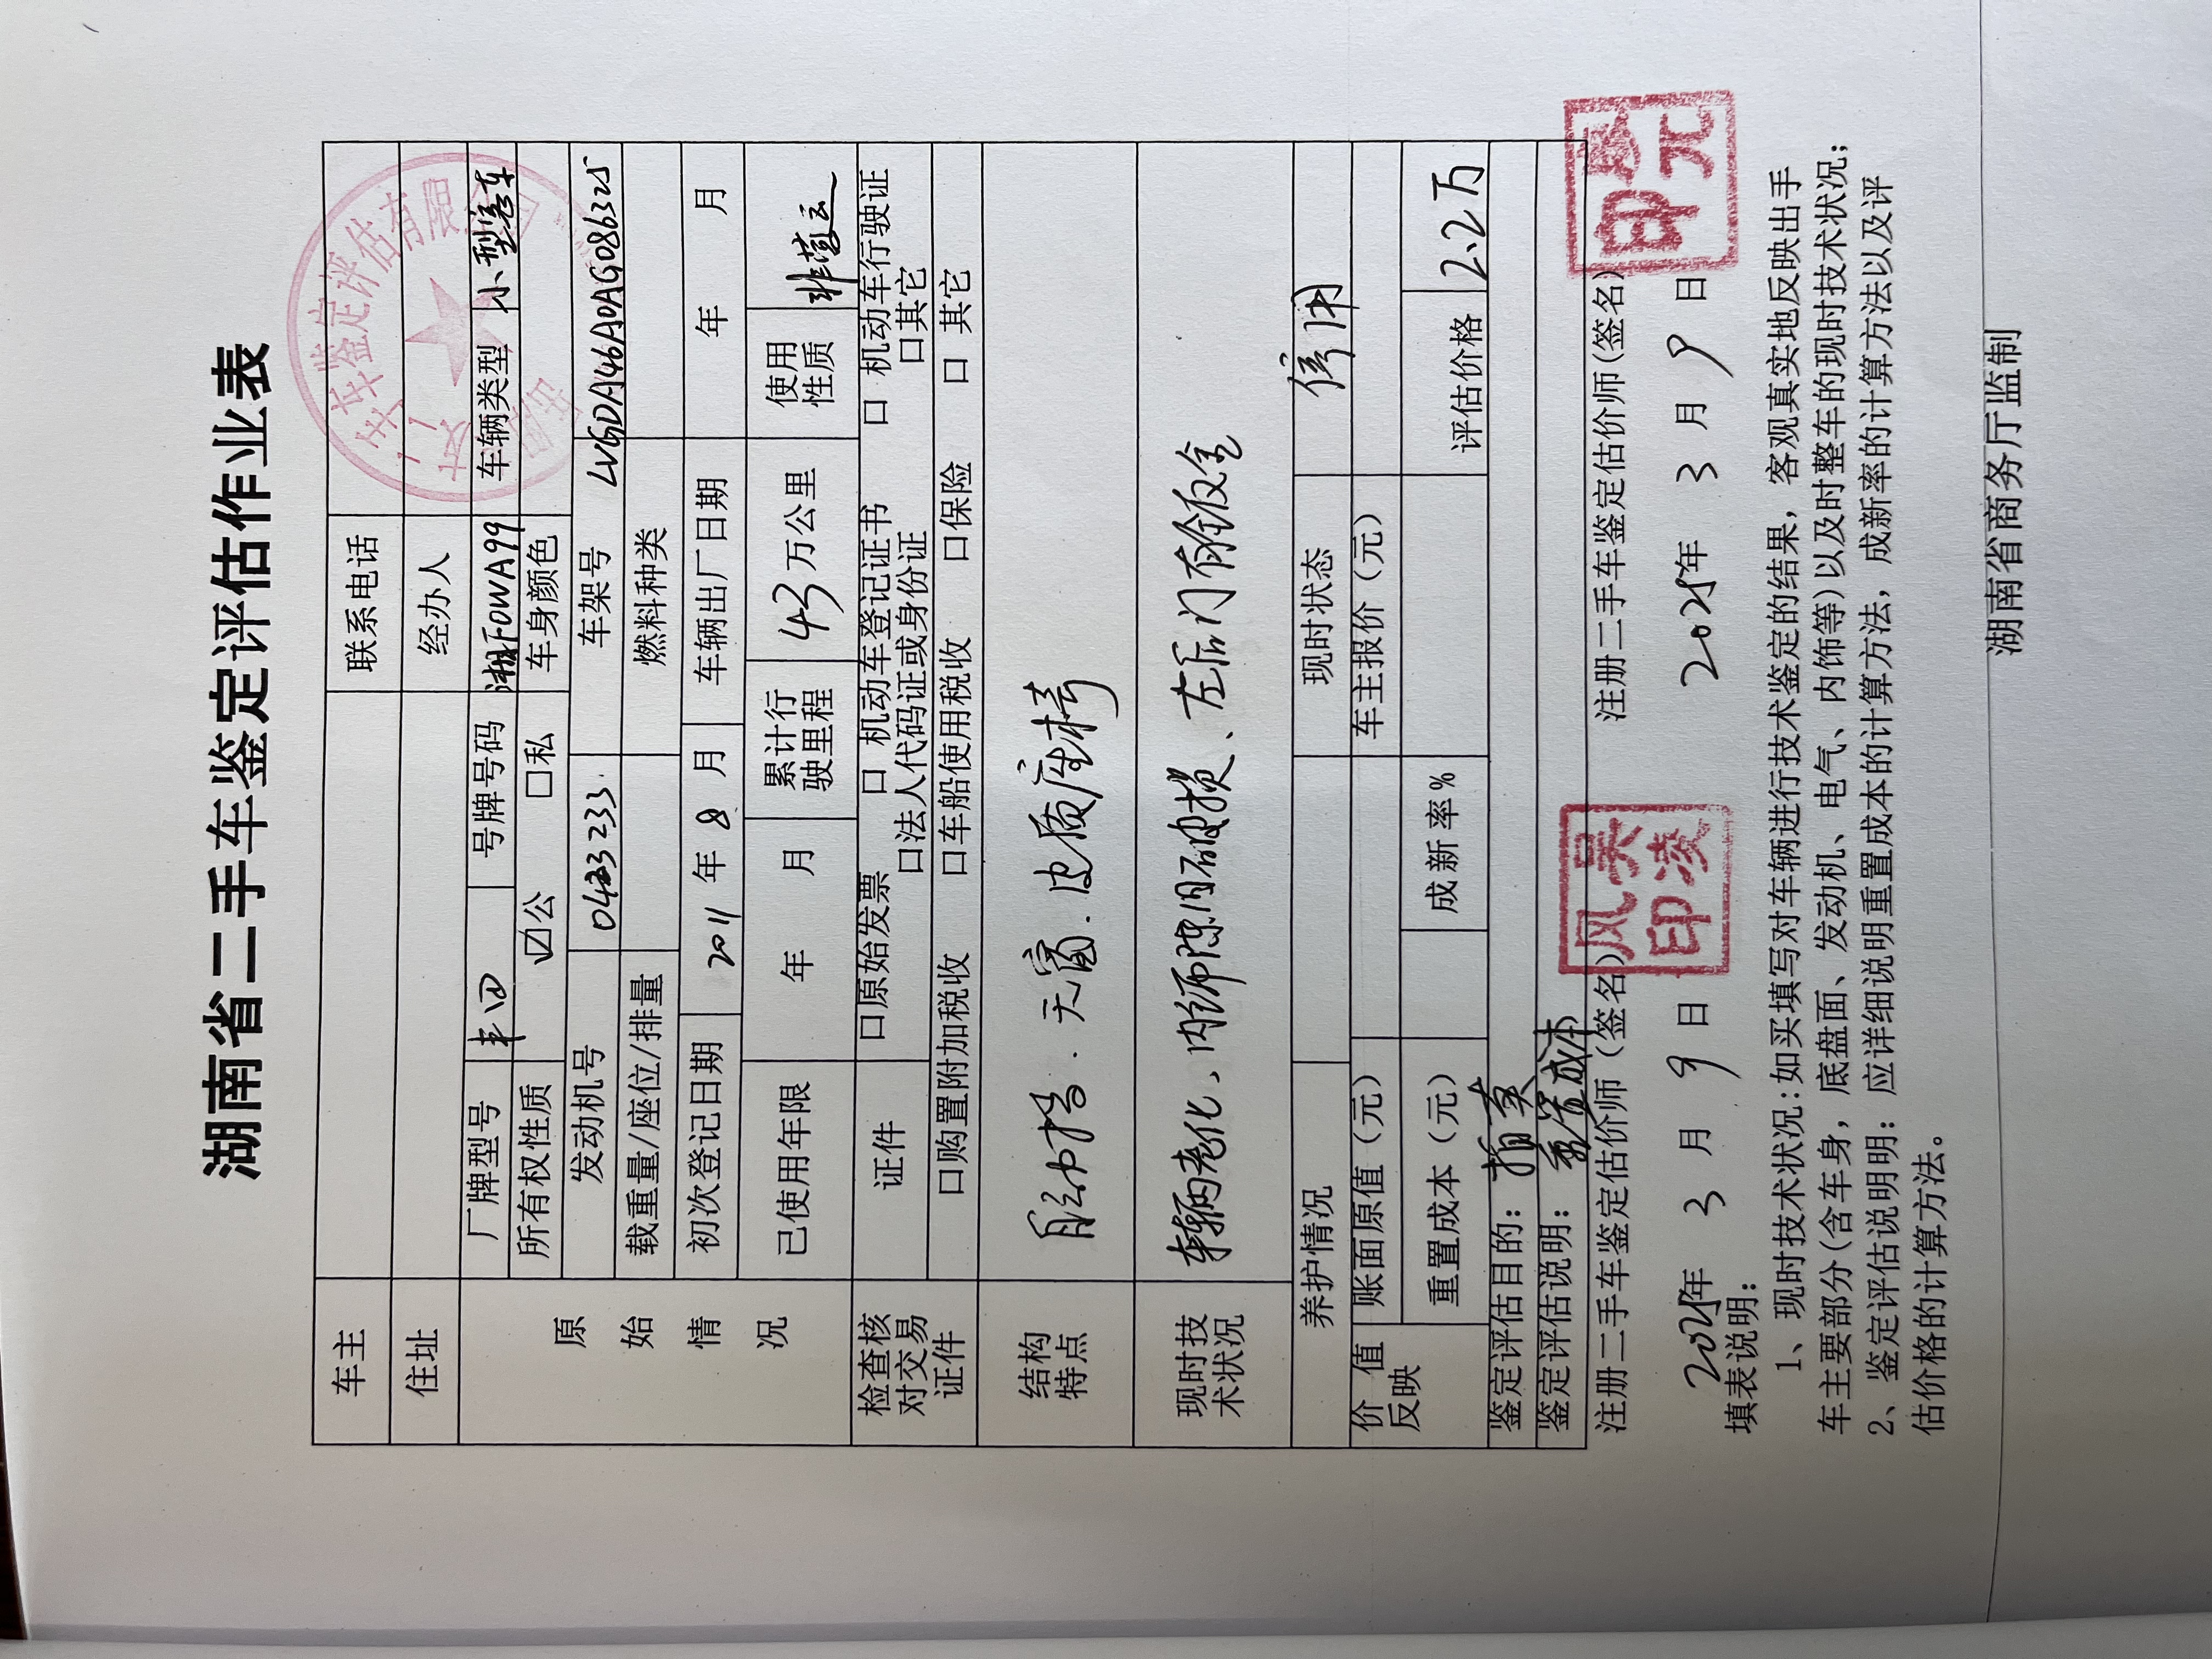 湖南省二手车鉴定评估作业表
车主 联系电话
住址 经办人
原始情况
厂牌型号 丰田 号牌号码 湘F0WA99 车辆类型 小型客车
所有权性质 ☑公 □私 车身颜色
发动机号 0433233 车架号 LVGDA46A0AG086325
载重量/座位/排量 燃料种类
初次登记日期 2011年8月 车辆出厂日期 年 月
已使用年限 年 月 累计行驶里程 43万公里 使用性质 非营运
检查核对交易证件
证件 □原始发票 □机动车登记证书 □机动车行驶证
□法人代码证或身份证 □其它
□购置附加税收 □车船使用税收 □保险 □其它
结构特点 自动挡.天窗.皮质座椅
现时技术状况 车辆老化、内饰陈旧破损、左后门有钣金
养护情况 现时状态
价值反映 账面原值（元） 车主报价（元）
重置成本（元） 成新率% 评估价格 2.2万
鉴定评估目的：
鉴定评估说明：
注册二手车鉴定估价师（签名） 注册二手车鉴定估价师(签名)
2025年3月9日 2025年3月9日
填表说明：
1、现时技术状况:如买填写对车辆进行技术鉴定的结果，客观真实地反映出手
车主要部分(含车身，底盘面、发动机、电气、内饰等)以及时整车的现时技术状况；
2、鉴定评估说明明：应详细说明重置成本的计算方法，成新率的计算方法以及评
估价格的计算方法。
湖南省商务厅监制